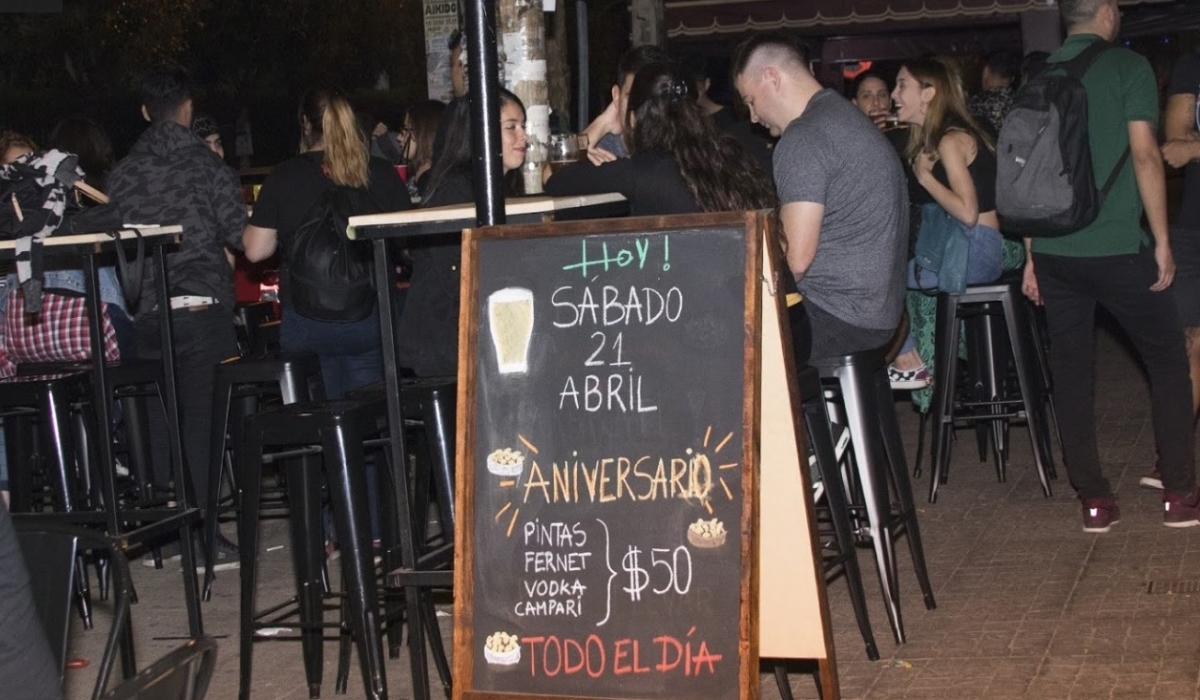 AIKIDO
Hoy!
SÁBADO
21
ABRIL
ANIVERSARIO
PINTAS
FERNET
VODKA
CAMPARI
$50
TODO EL DÍA